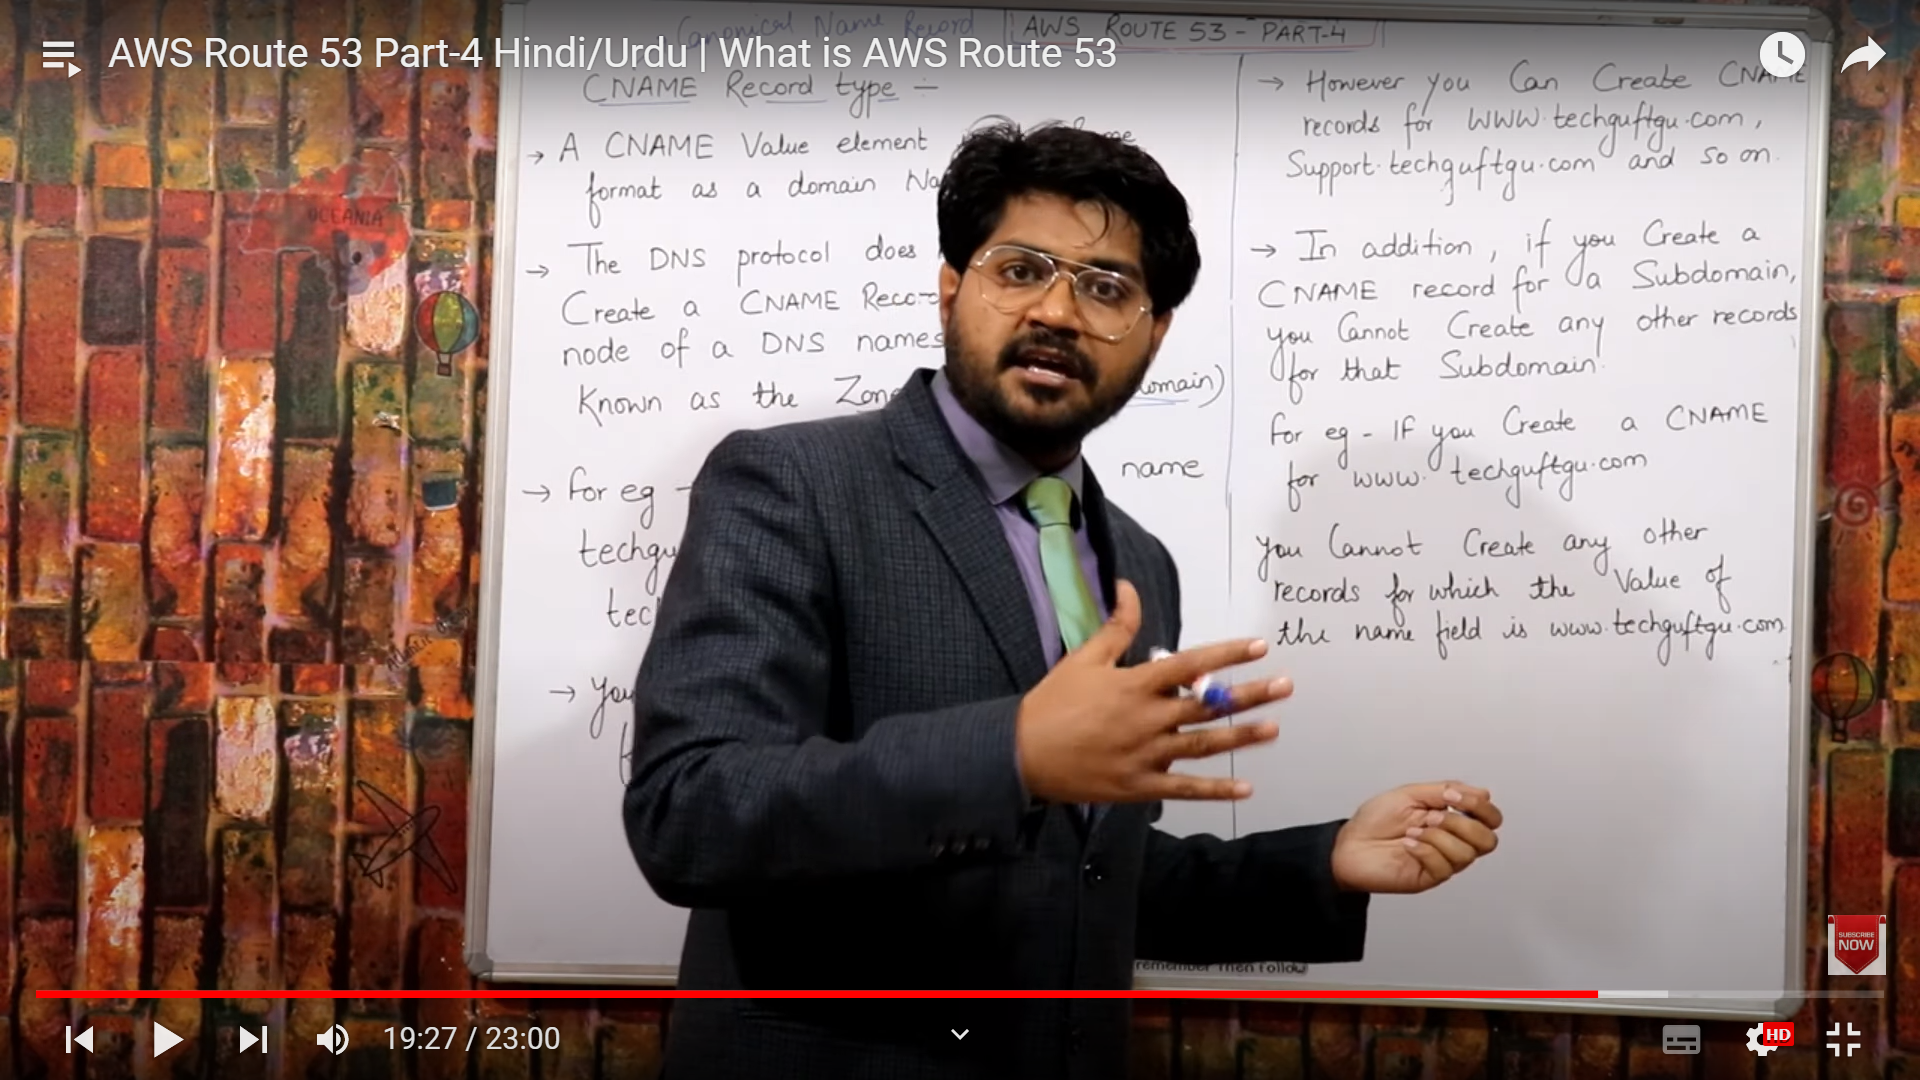 AWS Route 53 Part-4 Hindi/Urdu | What is AWS Route 53
Canonical Name Record
AWS ROUTE 53 - PART-4
CNAME Record type :-
→ A CNAME Value element
format as a domain
→ The DNS protocol does
Create a CNAME
node of a DNS names
Known as the
name
→ For eg -
→ However you Can Create CNAME
records for WWW.techguftgu.com,
Support.techguftgu.com and so on.
→ In addition, if you Create a
CNAME record for a Subdomain,
you Cannot Create any other records
for that Subdomain.
For eg - IF you Create a CNAME
for www.techguftgu.com
you Cannot Create any other
records for which the Value of
the name field is www.techguftgu.com.
OCEANIA
remember Then Follow
SUBSCRIBE
NOW
19:27 / 23:00
HD